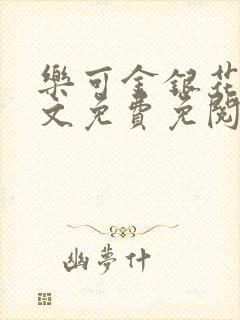 樂可金銀花
文免費免閱
幽夢什